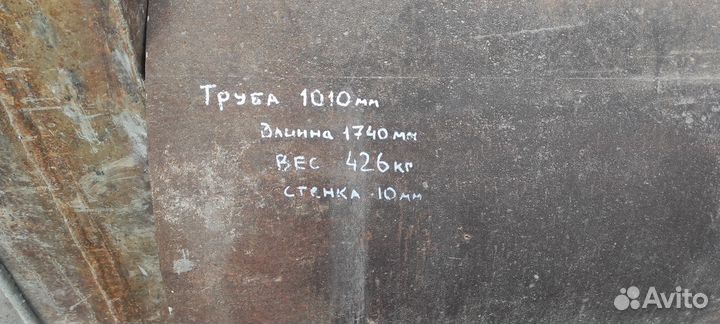 Труба 1010мм
Длинна 1740мм
Вес 426кг
стенка 10мм
Avito